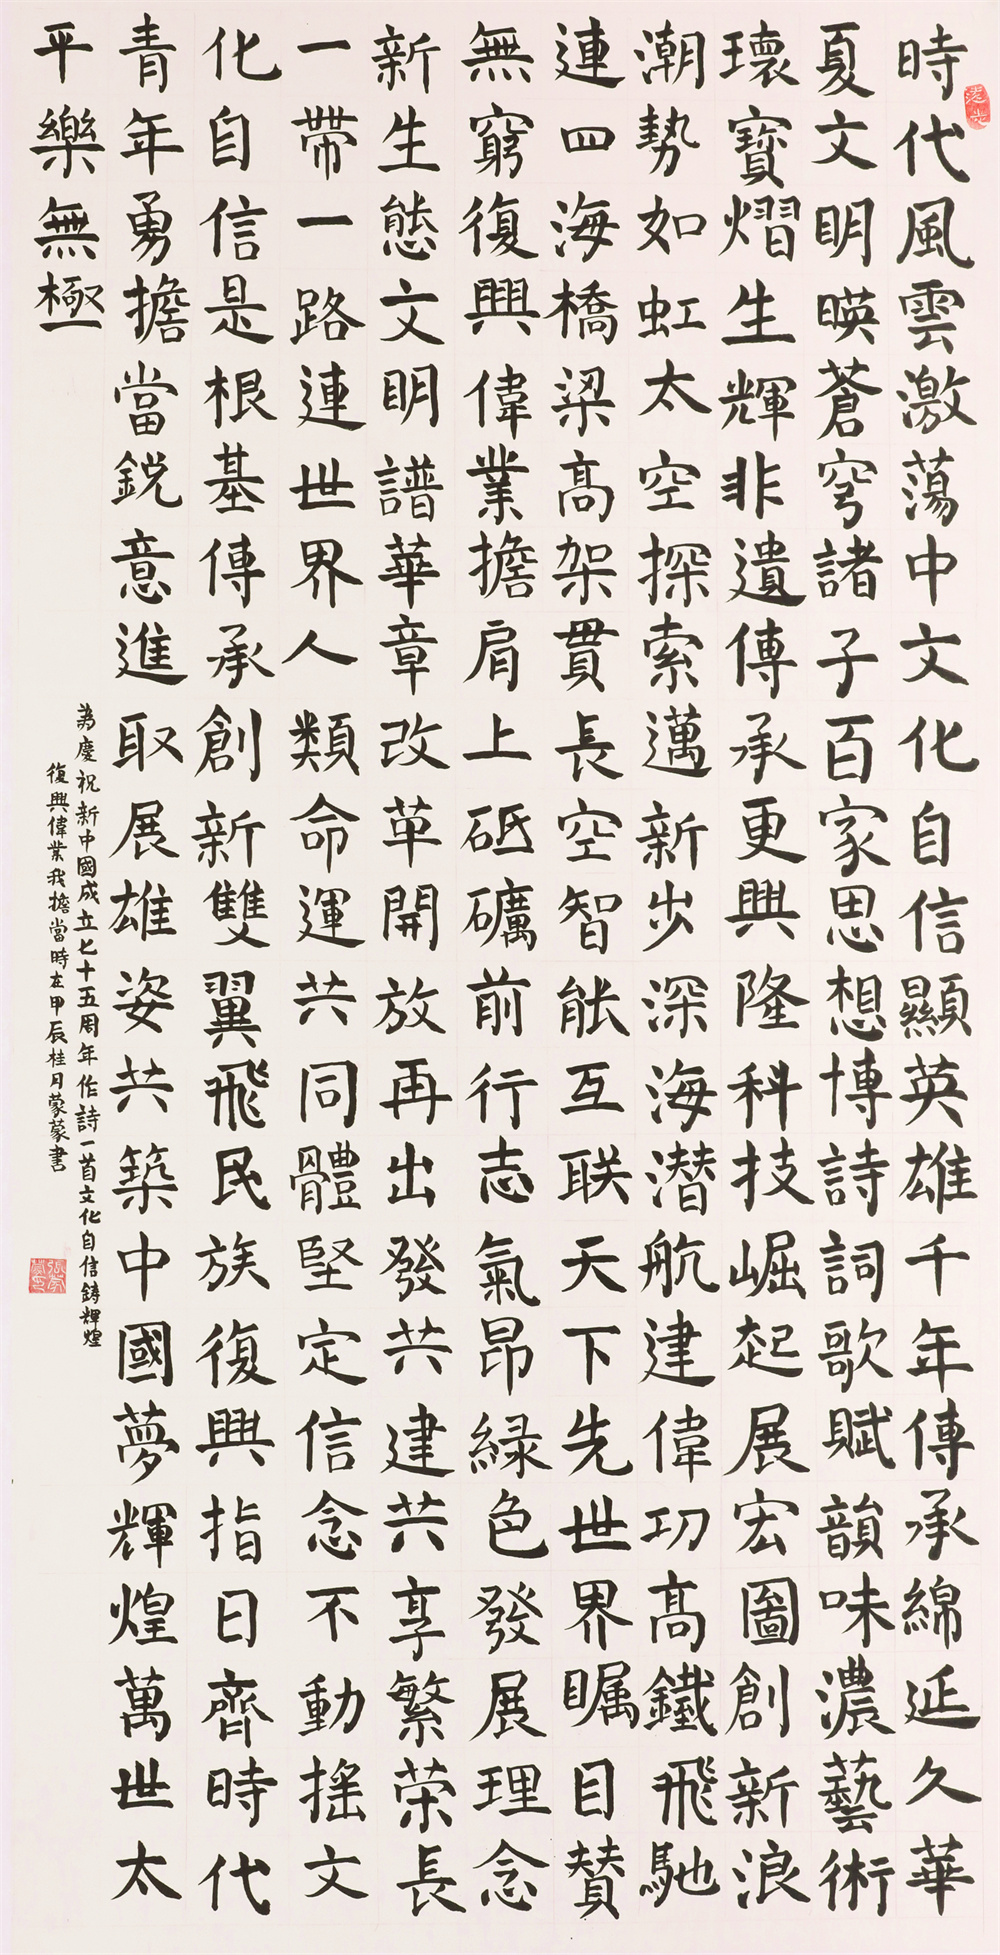 時代風雲激蕩中文化自信顯英雄千年傳承綿延久華
夏文明暎蒼穹諸子百家思想博詩詞歌賦韻味濃藝術
瓌寶熠生輝非遺傳承更興隆科技崛起展宏圖創新浪
潮勢如虹太空探索邁新步深海潛航建偉功高鐵飛馳
連四海橋梁高架貫長空智能互联天下先世界矚目贊
無窮復興偉業擔肩上砥礪前行志氣昂緑色發展理念
新生態文明譜華章改革開放再出發共建共享繁荣長
一帶一路連世界人類命運共同體堅定信念不動摇文
化自信是根基傳承創新雙翼飛民族復興指日齊時代
青年勇擔當鋭意進取展雄姿共築中國夢輝煌萬世太
平樂無極
為慶祝新中國成立七十五周年作詩一首文化自信鑄輝煌
復興偉業我擔當時在甲辰桂月蒙蒙書